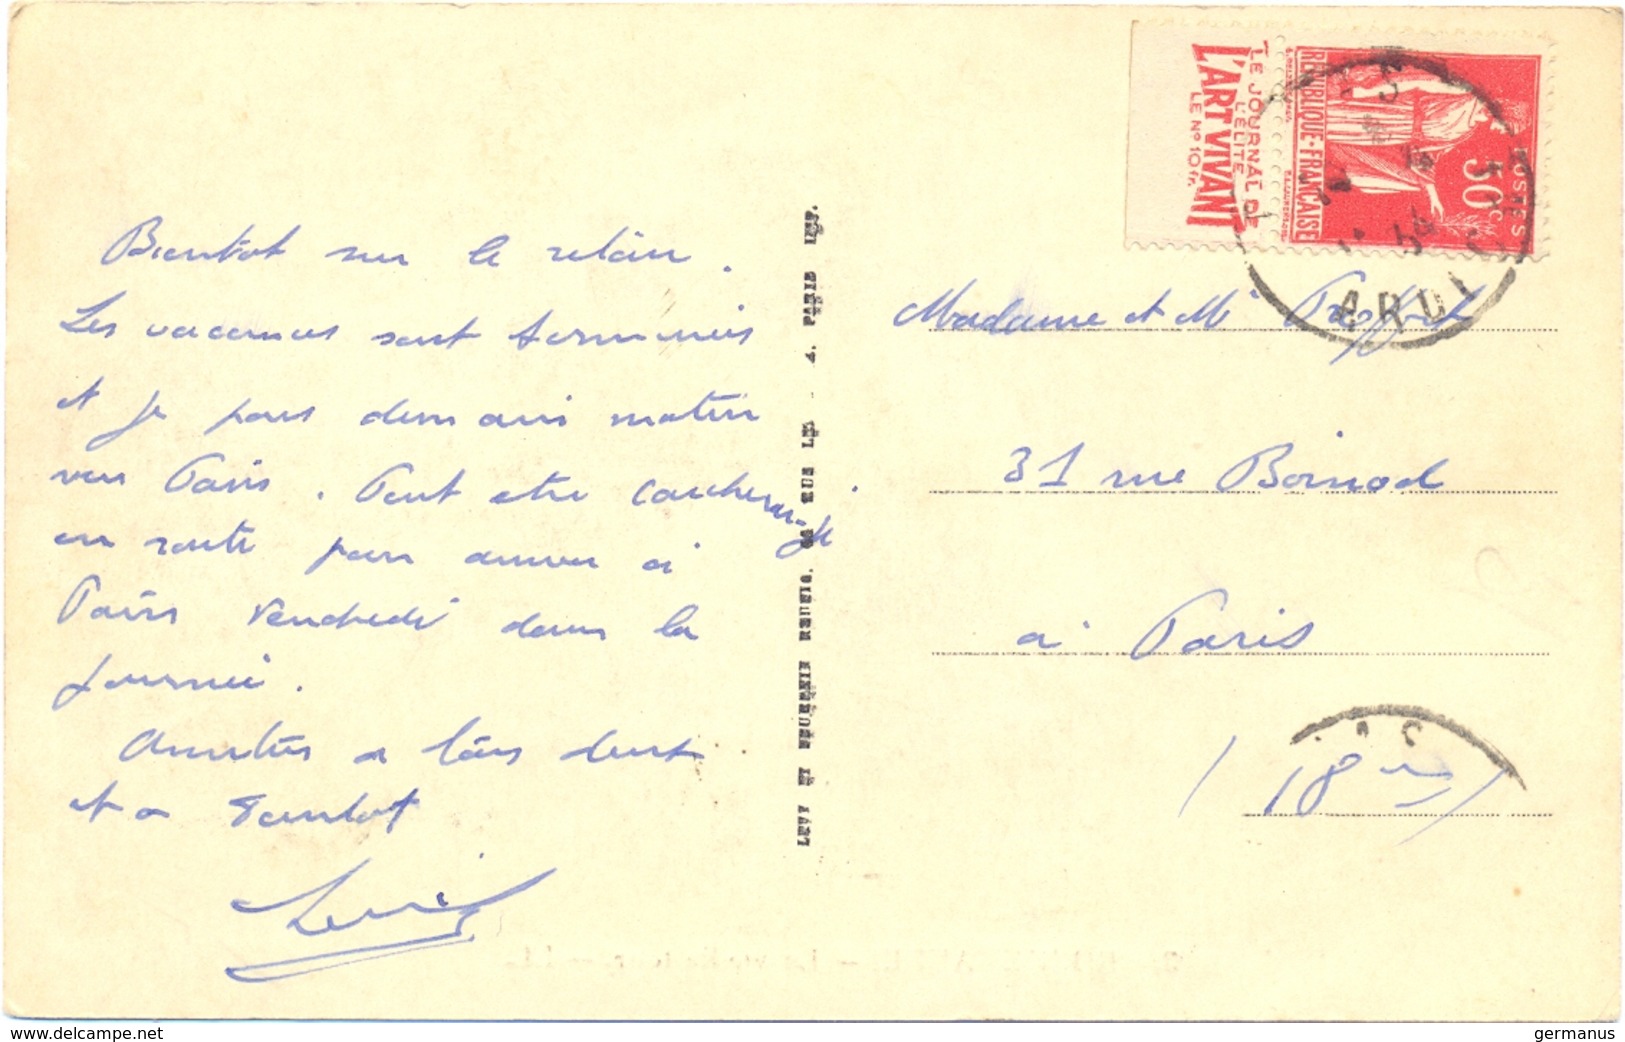 Bientot sur le retour.
Les vacances sont terminées
et je pars demain matin
vers Paris. Peut etre coucherai-je
en route pour arriver à
Paris Vendredi dans la
journée.
Amitiés a tous deux
et a Bientot
Louis
LEVY ET NEURDEIN REUNIS. RUE PARIS IMP.
LE JOURNAL DE
L'ÉLITE
L'ART VIVANT
LE Nº 10 fr.
REPUBLIQUE·FRANÇAISE
50c
POSTES
Madame et Mr
31 rue Boinod
à Paris
(18e)
delcampe.net
germanus